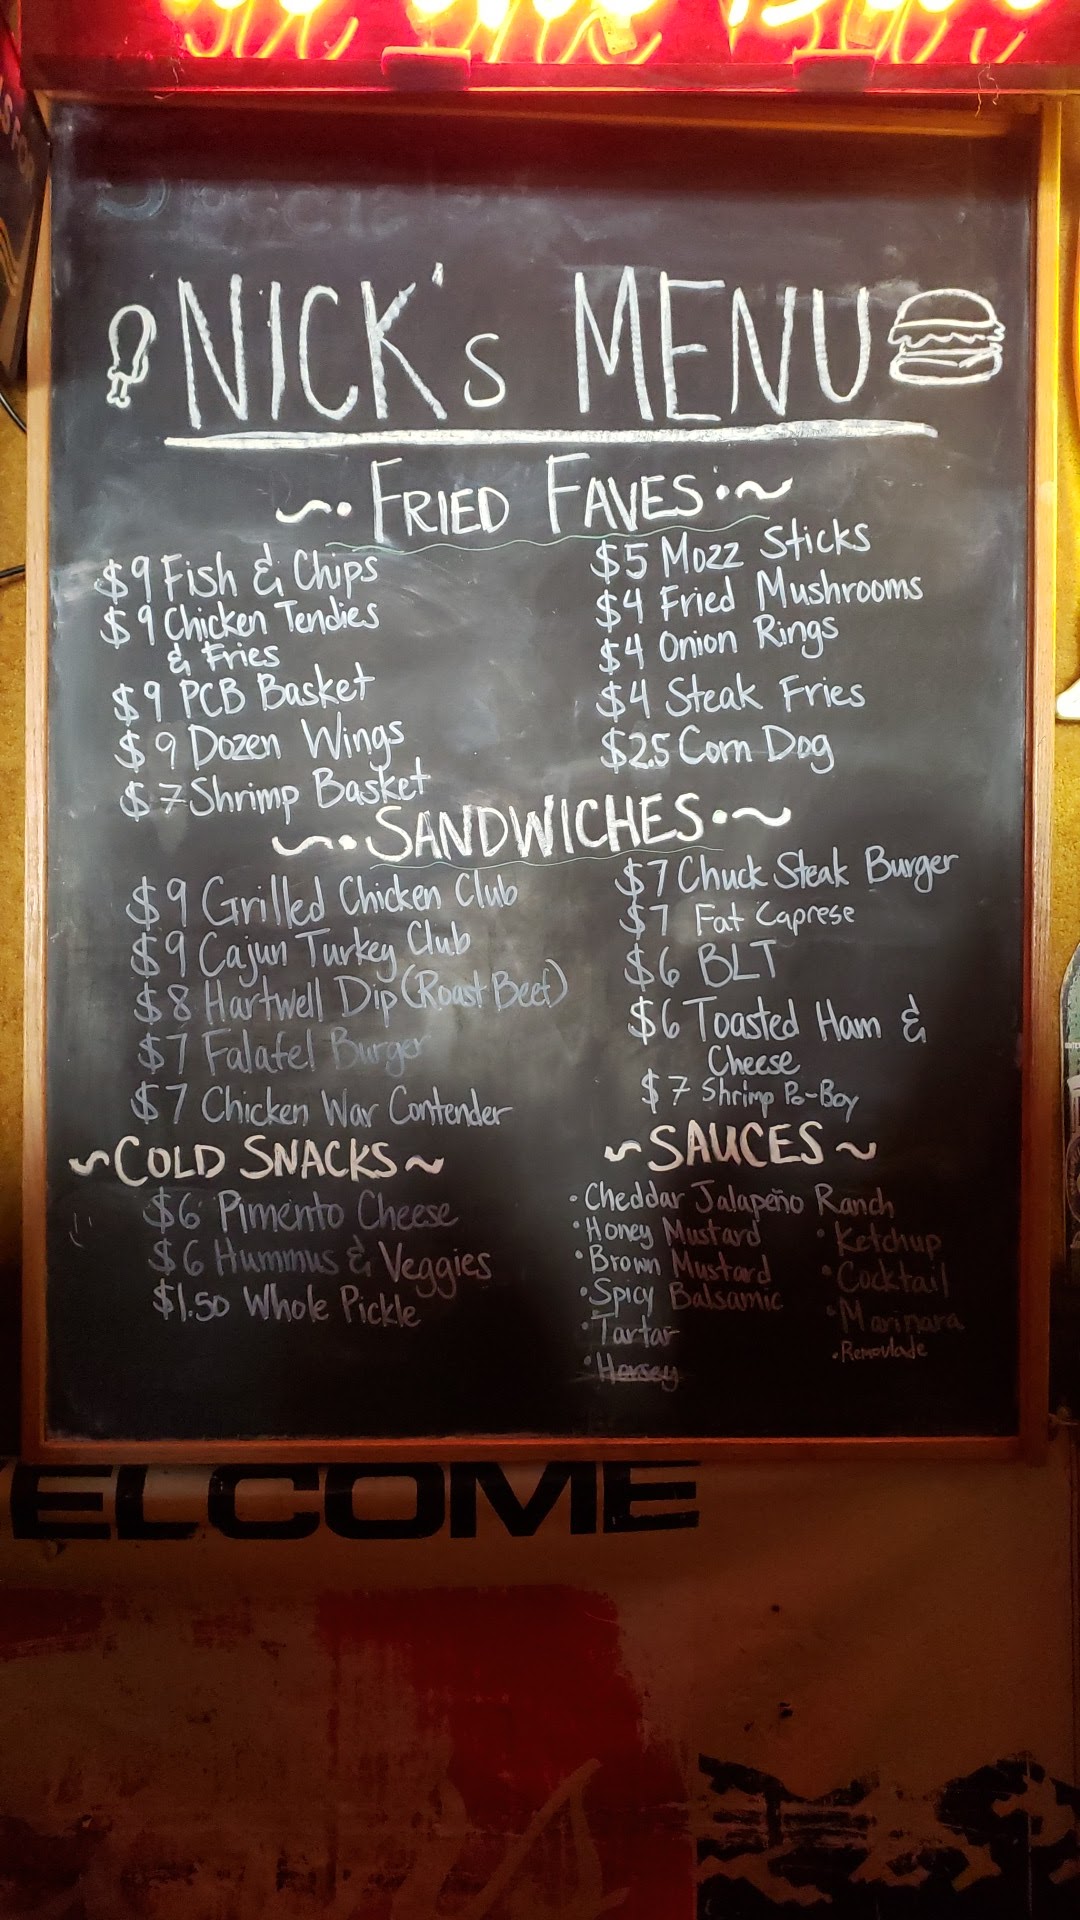 NICK's MENU
~· FRIED FAVES ·~
$9 Fish & Chips
$9 Chicken Tendies
& Fries
$9 PCB Basket
$9 Dozen Wings
$7 Shrimp Basket
$5 Mozz Sticks
$4 Fried Mushrooms
$4 Onion Rings
$4 Steak Fries
$2.5 Corn Dog
~· SANDWICHES ·~
$9 Grilled Chicken Club
$9 Cajun Turkey Club
$8 Hartwell Dip (Roast Beef)
$7 Falafel Burger
$7 Chicken War Contender
$7 Chuck Steak Burger
$7 Fat Caprese
$6 BLT
$6 Toasted Ham &
Cheese
$7 Shrimp Po-Boy
~COLD SNACKS~
$6 Pimento Cheese
$6 Hummus & Veggies
$1.50 Whole Pickle
~SAUCES~
· Cheddar Jalapeño Ranch
· Honey Mustard
· Brown Mustard
· Spicy Balsamic
· Tartar
· Horsey
· Ketchup
· Cocktail
· Marinara
· Remoulade
ELCOME